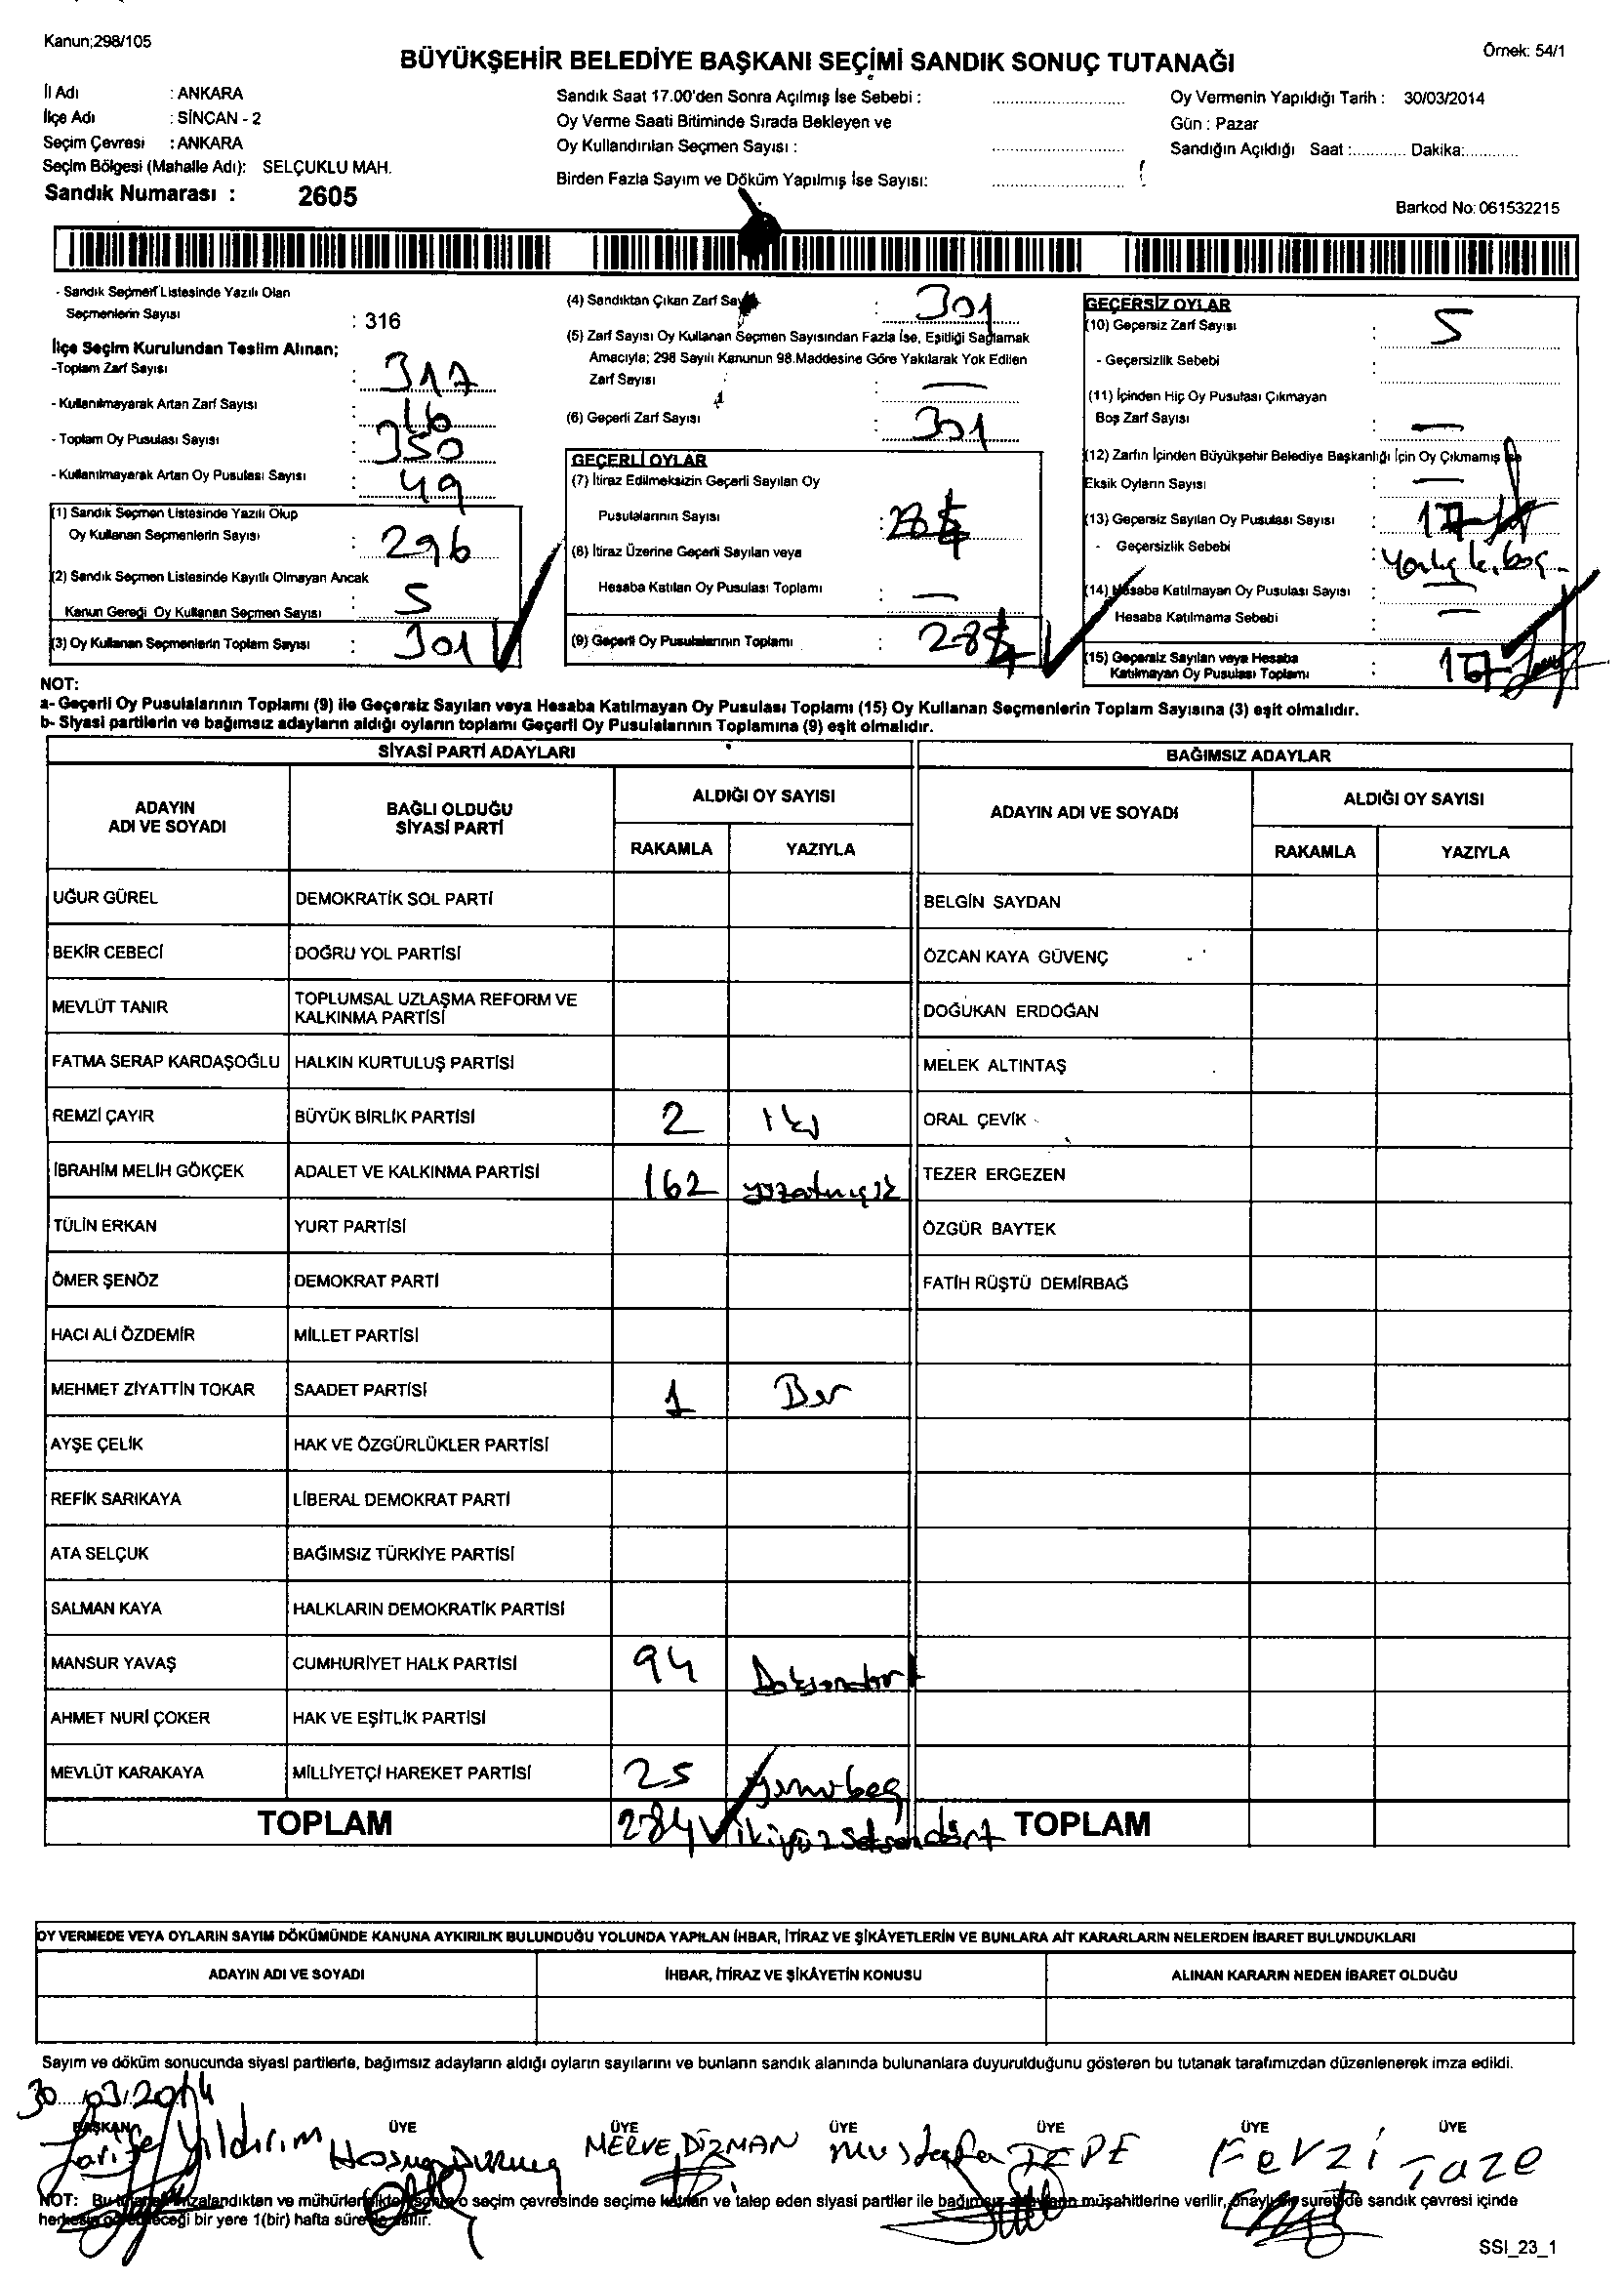 Kanun;298/105
Örnek: 54/1
BÜYÜKŞEHİR BELEDİYE BAŞKANI SEÇİMİ SANDIK SONUÇ TUTANAĞI
İl Adı : ANKARA
İlçe Adı : SİNCAN - 2
Seçim Çevresi : ANKARA
Seçim Bölgesi (Mahalle Adı): SELÇUKLU MAH.
Sandık Numarası : 2605
Sandık Saat 17.00'den Sonra Açılmış İse Sebebi :
Oy Verme Saati Bitiminde Sırada Bekleyen ve
Oy Kullandırılan Seçmen Sayısı :
Birden Fazla Sayım ve Döküm Yapılmış İse Sayısı:
Oy Vermenin Yapıldığı Tarih : 30/03/2014
Gün : Pazar
Sandığın Açıldığı Saat :........... Dakika:...........
Barkod No: 061532215
- Sandık Seçmen Listesinde Yazılı Olan
Seçmenlerin Sayısı : 316
İlçe Seçim Kurulundan Teslim Alınan;
-Toplam Zarf Sayısı : 317
- Kullanılmayarak Artan Zarf Sayısı : 16
- Toplam Oy Pusulası Sayısı : 350
- Kullanılmayarak Artan Oy Pusulası Sayısı : 49
(1) Sandık Seçmen Listesinde Yazılı Olup
Oy Kullanan Seçmenlerin Sayısı : 296
(2) Sandık Seçmen Listesinde Kayıtlı Olmayan Ancak
Kanun Gereği Oy Kullanan Seçmen Sayısı : 5
(3) Oy Kullanan Seçmenlerin Toplam Sayısı : 301
(4) Sandıktan Çıkan Zarf Sayısı : 301
(5) Zarf Sayısı Oy Kullanan Seçmen Sayısından Fazla İse, Eşitliği Sağlamak
Amacıyla; 298 Sayılı Kanunun 98.Maddesine Göre Yakılarak Yok Edilen
Zarf Sayısı : —
(6) Geçerli Zarf Sayısı : 301
GEÇERLİ OYLAR
(7) İtiraz Edilmeksizin Geçerli Sayılan Oy
Pusulalarının Sayısı : 284
(8) İtiraz Üzerine Geçerli Sayılan veya
Hesaba Katılan Oy Pusulası Toplamı : —
(9) Geçerli Oy Pusulalarının Toplamı : 284
GEÇERSİZ OYLAR
(10) Geçersiz Zarf Sayısı : 5
- Geçersizlik Sebebi :
(11) İçinden Hiç Oy Pusulası Çıkmayan
Boş Zarf Sayısı : —
(12) Zarfın İçinden Büyükşehir Belediye Başkanlığı İçin Oy Çıkmamış İse
Eksik Oyların Sayısı : —
(13) Geçersiz Sayılan Oy Pusulası Sayısı : 17
- Geçersizlik Sebebi :
(14) Hesaba Katılmayan Oy Pusulası Sayısı : —
Hesaba Katılmama Sebebi : —
(15) Geçersiz Sayılan veya Hesaba
Katılmayan Oy Pusulası Toplamı : 17
NOT:
a- Geçerli Oy Pusulalarının Toplamı (9) ile Geçersiz Sayılan veya Hesaba Katılmayan Oy Pusulası Toplamı (15) Oy Kullanan Seçmenlerin Toplam Sayısına (3) eşit olmalıdır.
b- Siyasi partilerin ve bağımsız adayların aldığı oyların toplamı Geçerli Oy Pusulalarının Toplamına (9) eşit olmalıdır.
SİYASİ PARTİ ADAYLARI
ADAYIN ADI VE SOYADI
BAĞLI OLDUĞU SİYASİ PARTİ
ALDIĞI OY SAYISI
RAKAMLA YAZIYLA
UĞUR GÜREL DEMOKRATİK SOL PARTİ
BEKİR CEBECİ DOĞRU YOL PARTİSİ
MEVLÜT TANIR TOPLUMSAL UZLAŞMA REFORM VE
KALKINMA PARTİSİ
FATMA SERAP KARDAŞOĞLU HALKIN KURTULUŞ PARTİSİ
REMZİ ÇAYIR BÜYÜK BİRLİK PARTİSİ 2 iki
İBRAHİM MELİH GÖKÇEK ADALET VE KALKINMA PARTİSİ 162
TÜLİN ERKAN YURT PARTİSİ
ÖMER ŞENÖZ DEMOKRAT PARTİ
HACI ALİ ÖZDEMİR MİLLET PARTİSİ
MEHMET ZİYATTİN TOKAR SAADET PARTİSİ 1 Bir
AYŞE ÇELİK HAK VE ÖZGÜRLÜKLER PARTİSİ
REFİK SARIKAYA LİBERAL DEMOKRAT PARTİ
ATA SELÇUK BAĞIMSIZ TÜRKİYE PARTİSİ
SALMAN KAYA HALKLARIN DEMOKRATİK PARTİSİ
MANSUR YAVAŞ CUMHURİYET HALK PARTİSİ 94
AHMET NURİ ÇOKER HAK VE EŞİTLİK PARTİSİ
MEVLÜT KARAKAYA MİLLİYETÇİ HAREKET PARTİSİ 25
TOPLAM 284 ikiyüzseksendört
BAĞIMSIZ ADAYLAR
ADAYIN ADI VE SOYADI
ALDIĞI OY SAYISI
RAKAMLA YAZIYLA
BELGİN SAYDAN
ÖZCAN KAYA GÜVENÇ
DOĞUKAN ERDOĞAN
MELEK ALTINTAŞ
ORAL ÇEVİK
TEZER ERGEZEN
ÖZGÜR BAYTEK
FATİH RÜŞTÜ DEMİRBAĞ
TOPLAM
OY VERMEDE VEYA OYLARIN SAYIM DÖKÜMÜNDE KANUNA AYKIRILIK BULUNDUĞU YOLUNDA YAPILAN İHBAR, İTİRAZ VE ŞİKÂYETLERİN VE BUNLARA AİT KARARLARIN NELERDEN İBARET BULUNDUKLARI
ADAYIN ADI VE SOYADI İHBAR, İTİRAZ VE ŞİKÂYETİN KONUSU ALINAN KARARIN NEDEN İBARET OLDUĞU
Sayım ve döküm sonucunda siyasi partilerle, bağımsız adayların aldığı oyların sayılarını ve bunların sandık alanında bulunanlara duyurulduğunu gösteren bu tutanak tarafımızdan düzenlenerek imza edildi.
30.03.2014
BAŞKAN ÜYE ÜYE ÜYE ÜYE ÜYE ÜYE
Yıldırım MERVE DİZMAN Mustafa TEPE Fevzi Taze
NOT: Bu tutanak imzalandıktan ve mühürlendikten sonra o seçim çevresinde seçime katılan ve talep eden siyasi partiler ile bağımsız adayların müşahitlerine verilir, onaylı bir sureti de sandık çevresi içinde
herkesin görebileceği bir yere 1(bir) hafta süre ile asılır.
SSI_23_1